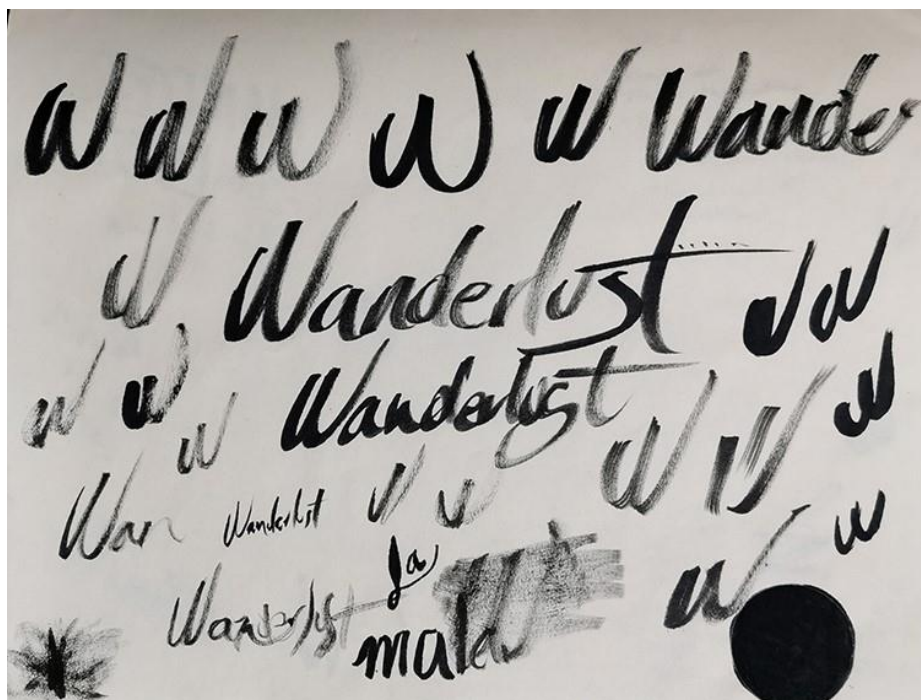 W W W W W Wande
W Wanderlust W W
W W Wanderlust W W W
W
Wan Wanderlust W W W
Wanderlust La W
mala